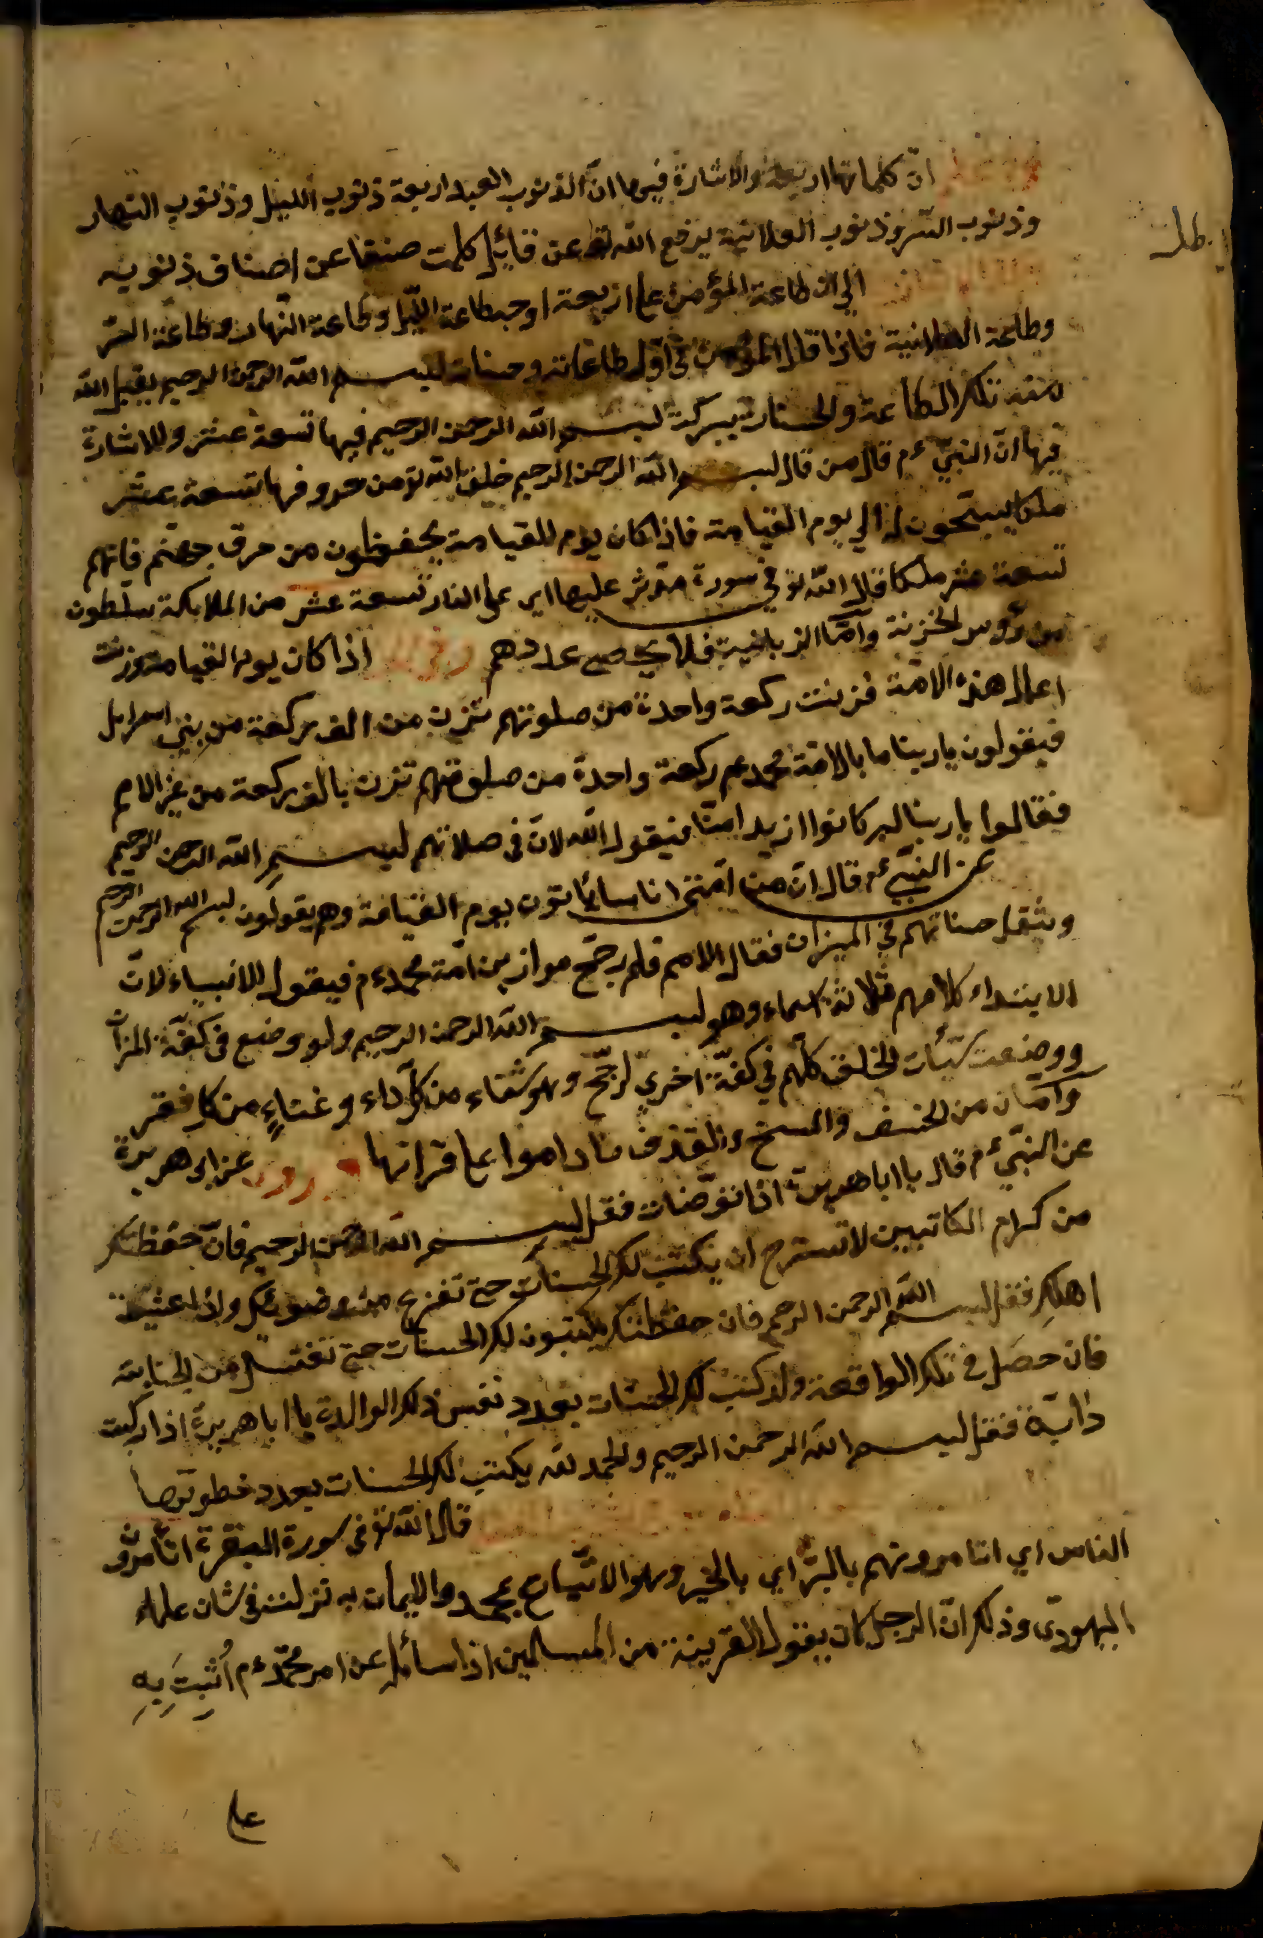 ان كلماتها اربعة والاشارة فيها ان الذنوب العبد اربعة ذنوب الليل وذنوب النهار
وذنوب السّر وذنوب العلانية يرفع الله تع عن قايل كلمت صنفا عن اصناف ذنوبه
الى ان طاعة المؤمن على اربعة اوجه طاعة الليل وطاعة النهار وطاعة السّر
وطاعة العلانية فاذا قال المؤمن في اوّل طاعاته وحسنات بسم الله الرحمن الرحيم يقبل الله
منه تلك الطاعة والحسنات ببركة بسم الله الرحمن الرحيم فيها تسعة عشر والاشارة
فيها انّ النبيّ ءم قال من قال بسم الله الرحمن الرحيم خلق الله تع من حروفها تسعة عشر
ملكا يسبّحون له الى يوم القيامة فاذا كان يوم القيامة يحفظون من حرق جهنم فانهم
تسعة عشر ملكا قال الله تع في سورة مدّثر عليها اي على النار تسعة عشر من الملائكة سلطون
من رؤس الخزنة وامّا الزبانية فلا يحصى عددهم اذا كان يوم القيامة وزنت
اعمال هذه الامّة فزنت ركعة واحدة من صلوتهم تزن من الف ركعة من بني اسرايل
فيقولون يا ربنا ما بال امّة محمد عم ركعة واحدة من صلوتهم تزن بالف ركعة من غير الامم
فقالوا يا ربنا كانوا ازيد امنّا فيقول الله لان في صلاتهم بسم الله الرحمن الرحيم
عن النبيّ ءم قال ان من امّتى اناسا يأتون يوم القيامة وهم يقولون بسم الله الرحمن الرحيم
وثقل حسناتهم في الميزان فقال الامم فلم رجّح موازين امّة محمد ءم فيقول الانبياء لانّ
الابتداء كلامهم ثلاثة اسماء وهو بسم الله الرحمن الرحيم ولو وضع في كفّة الميزان
ووضعت سيّئات الخلق كلّهم في كفّة اخرى لرجّح وهو شفاء من كلّ داء وغناء من كل فقر
وامان من الخسف والمسخ والقذف ما داموا على قرائتها عن ابى هريرة
عن النبيّ ءم قال يا ابا هريرة اذا توضّات فقل بسم الله الرحمن الرحيم فانّ حفظتك
من كرام الكاتبين لا تسترح ان يكتب لك الحسنات حتى تفرغ من وضوئك واذا غشيت
اهلك فقل بسم الله الرحمن الرحيم فان حفظتك يكتبون لك الحسنات حتى تغتسل من الجنابة
فان حصل في تلك الواقعة ولد كتب لك الحسنات بعدد نفس ذلك الوالد يا ابا هريرة اذا ركبت
دابّة فقل بسم الله الرحمن الرحيم والحمد لله يكتب لك الحسنات بعدد خطوتها
قال الله تع في سورة البقرة اتأمرون
الناس اي اتامرونهم بالبرّ اي بالخير وهو الاتّباع بمحمد والايمان به نزلت في شان علماء
اليهودي وذلك انّ الرجل كان يقول لقرينة من المسلمين اذا سأله عن امر محمّد ءم اُثبِت به
على